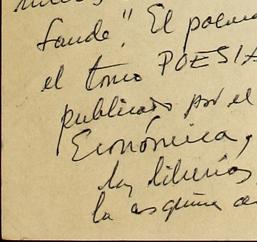 fande". El poema
el tomo POESIA
publicado por el
Económica,
las librerías
la esquina de